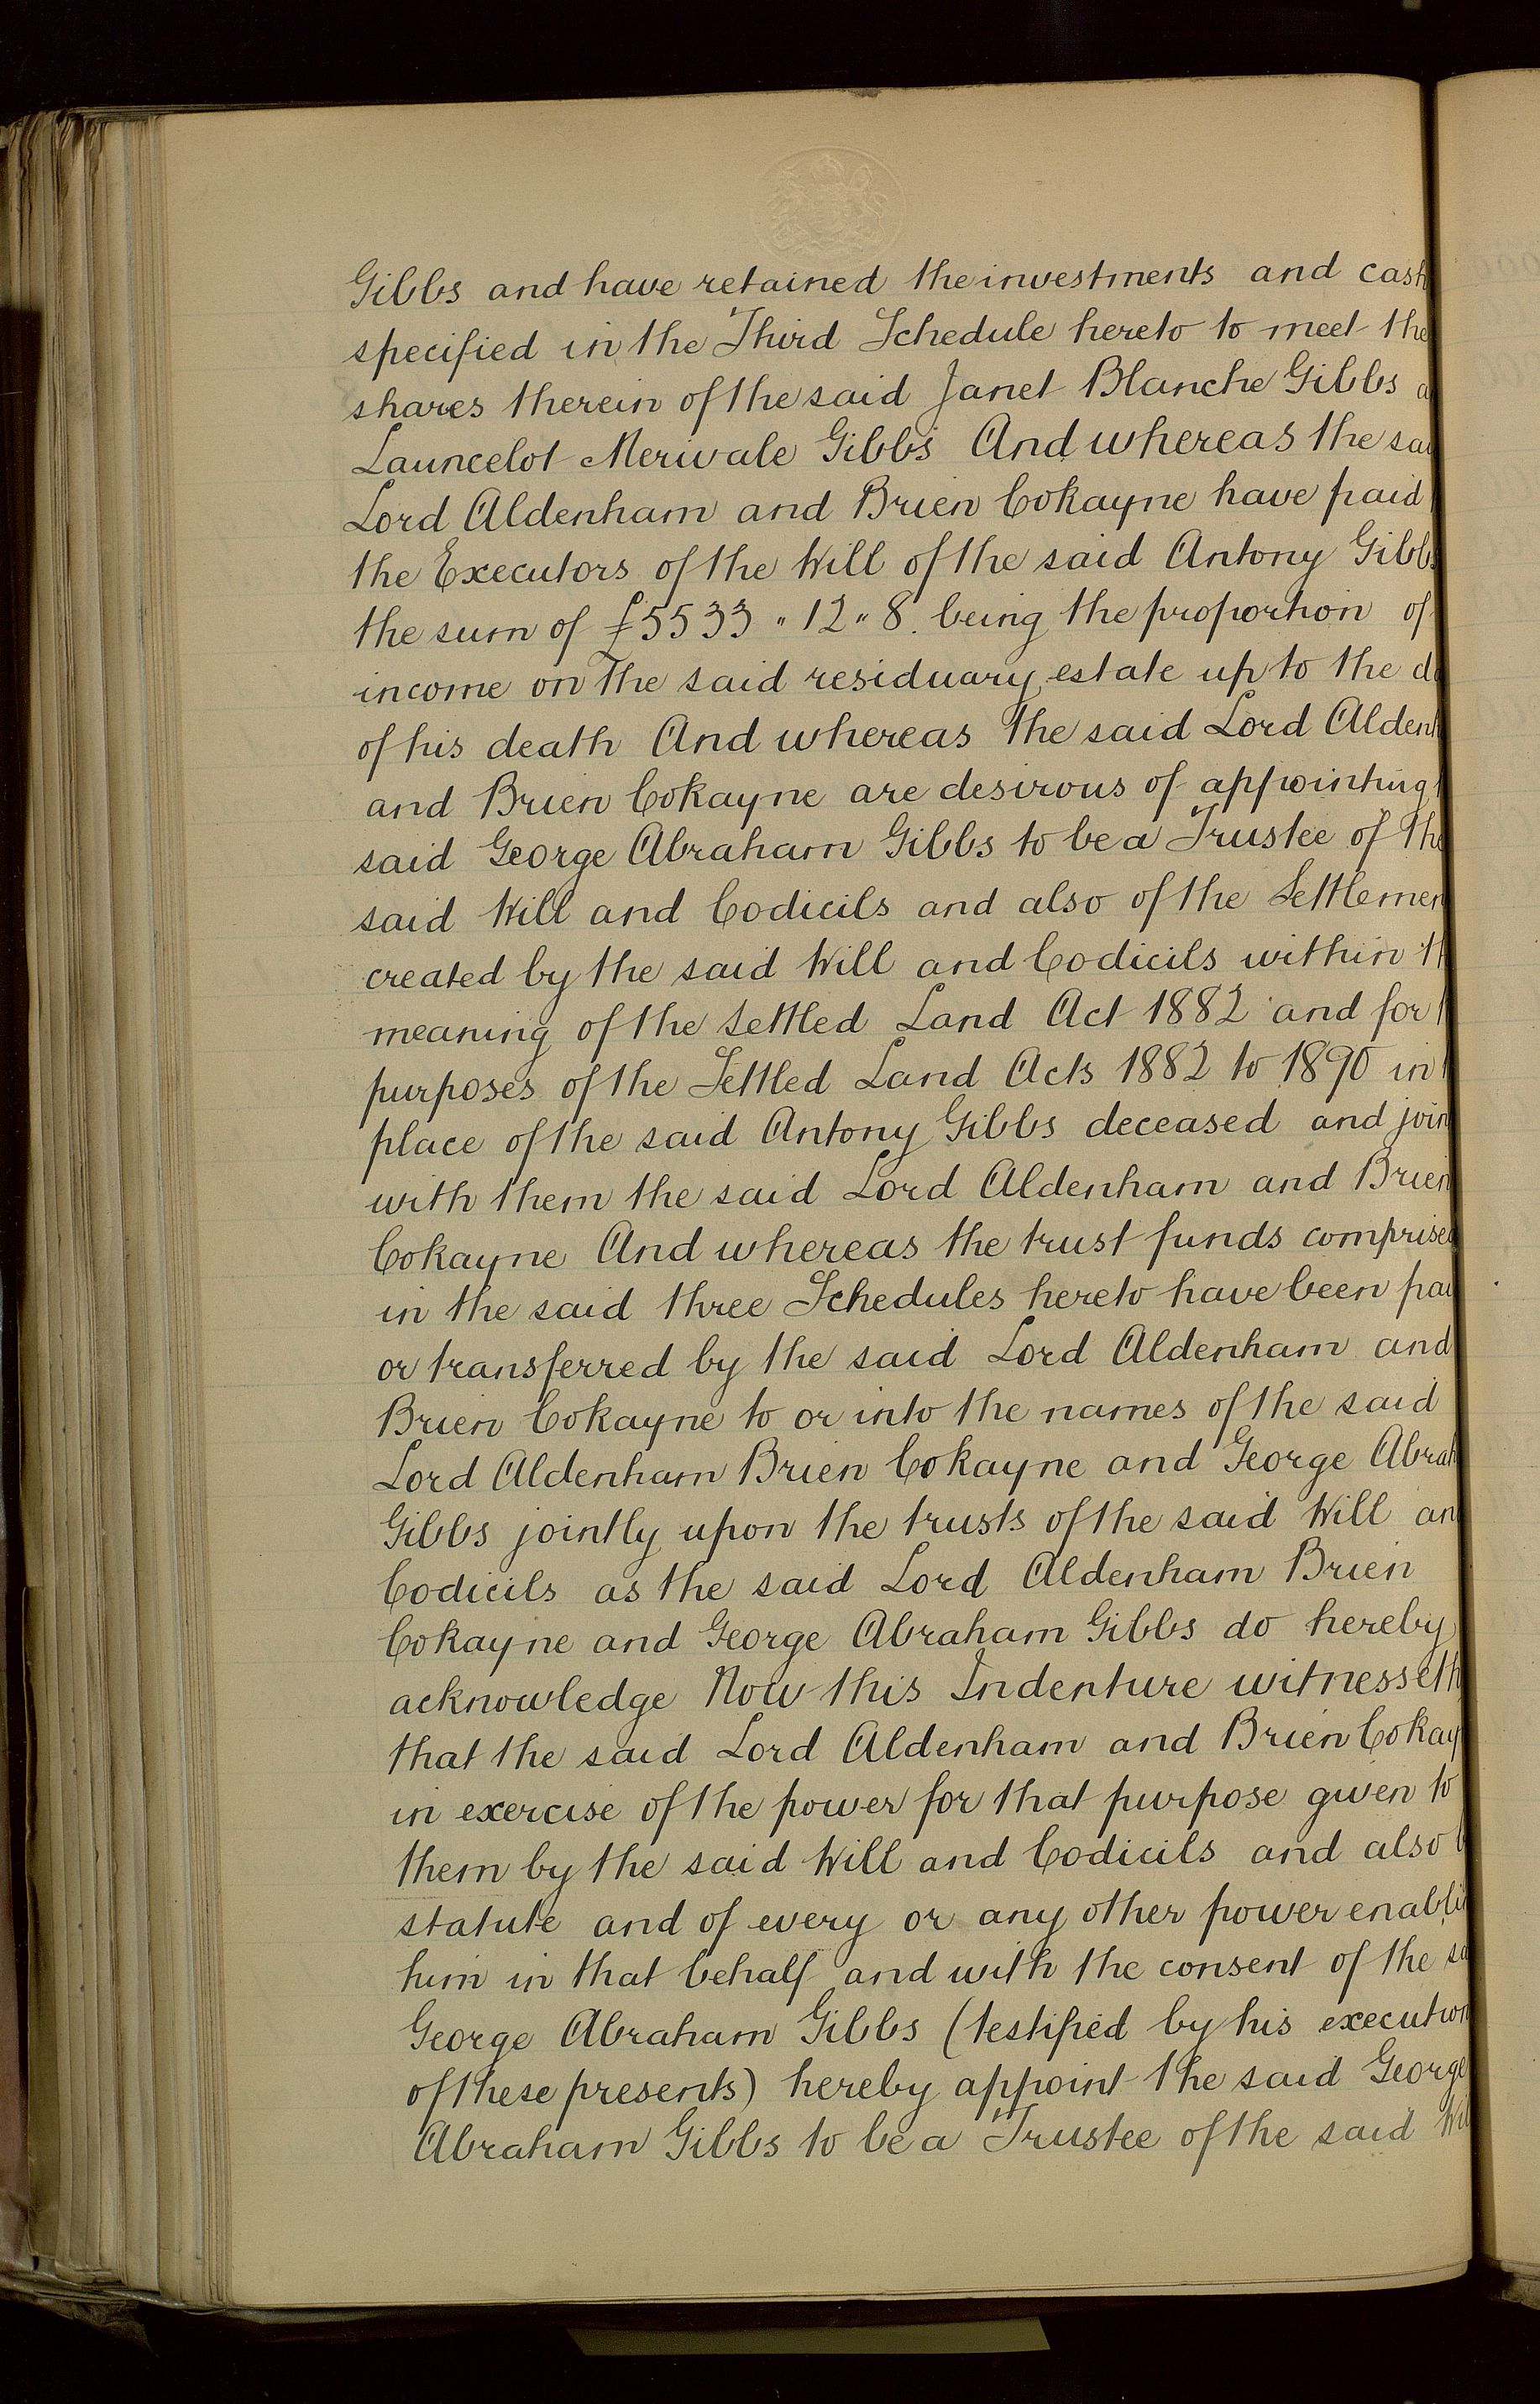 Gibbs and have retained the investments and cash
specified in the Third Schedule hereto to meet the
shares therein of the said Janet Blanche Gibbs a
Launcelot Merivale Gibbs And whereas the sai
Lord Aldenham and Brien Cokayne have paid
the Executors of the Will of the said Antony Gibbs
the sum of £5533 " 12 " 8. being the proportion of
income on the said residuary estate up to the da
of his death And whereas the said Lord Aldenh
and Brien Cokayne are desirous of appointing
said George Abraham Gibbs to be a Trustee of the
said Will and Codicils and also of the Settlemen
created by the said Will and Codicils within th
meaning of the Settled Land Act 1882 and for
purposes of the Settled Land Acts 1882 to 1890 in
place of the said Antony Gibbs deceased and join
with them the said Lord Aldenham and Brien
Cokayne And whereas the trust funds comprised
in the said three Schedules hereto have been pai
or transferred by the said Lord Aldenham and
Brien Cokayne to or into the names of the said
Lord Aldenham Brien Cokayne and George Abrah
Gibbs jointly upon the trusts of the said Will an
Codicils as the said Lord Aldenham Brien
Cokayne and George Abraham Gibbs do hereby
acknowledge Now this Indenture witnesseth
that the said Lord Aldenham and Brien Cokay
in exercise of the power for that purpose given to
them by the said Will and Codicils and also
statute and of every or any other power enabli
him in that behalf and with the consent of the sa
George Abraham Gibbs (testified by his execution
of these presents) hereby appoint the said George
Abraham Gibbs to be a Trustee of the said Wil